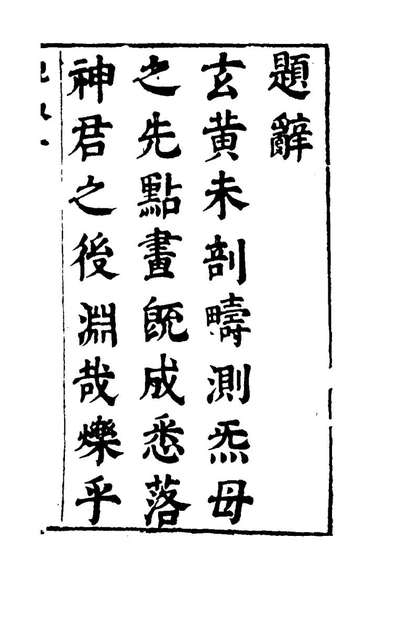 題辭
玄黃未剖疇測炁毋
之先點畫旣成悉落
神君之後淵哉爍乎